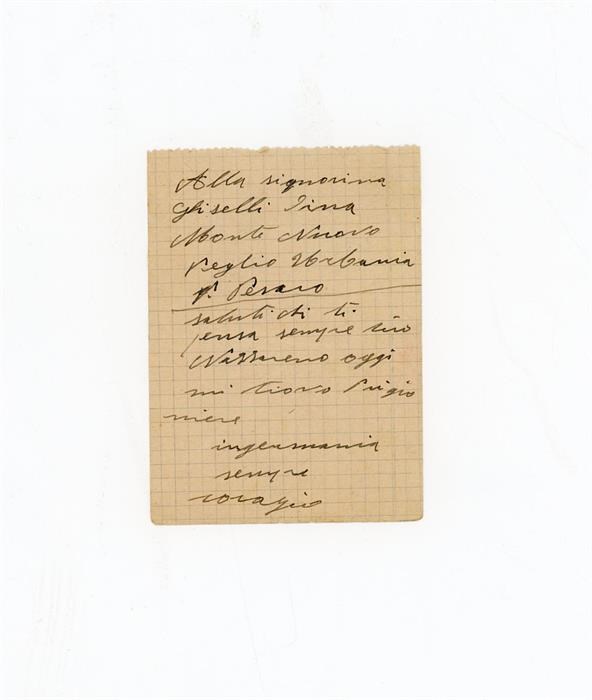 Alla signorina
Ghiselli Tina
Monte Nuovo
Peglio Urbania
P. Pesaro
saluti di ti
pensa sempre tuo
Nazzareno oggi
mi trovo Prigio
niere
ingermania
sempre
coragio